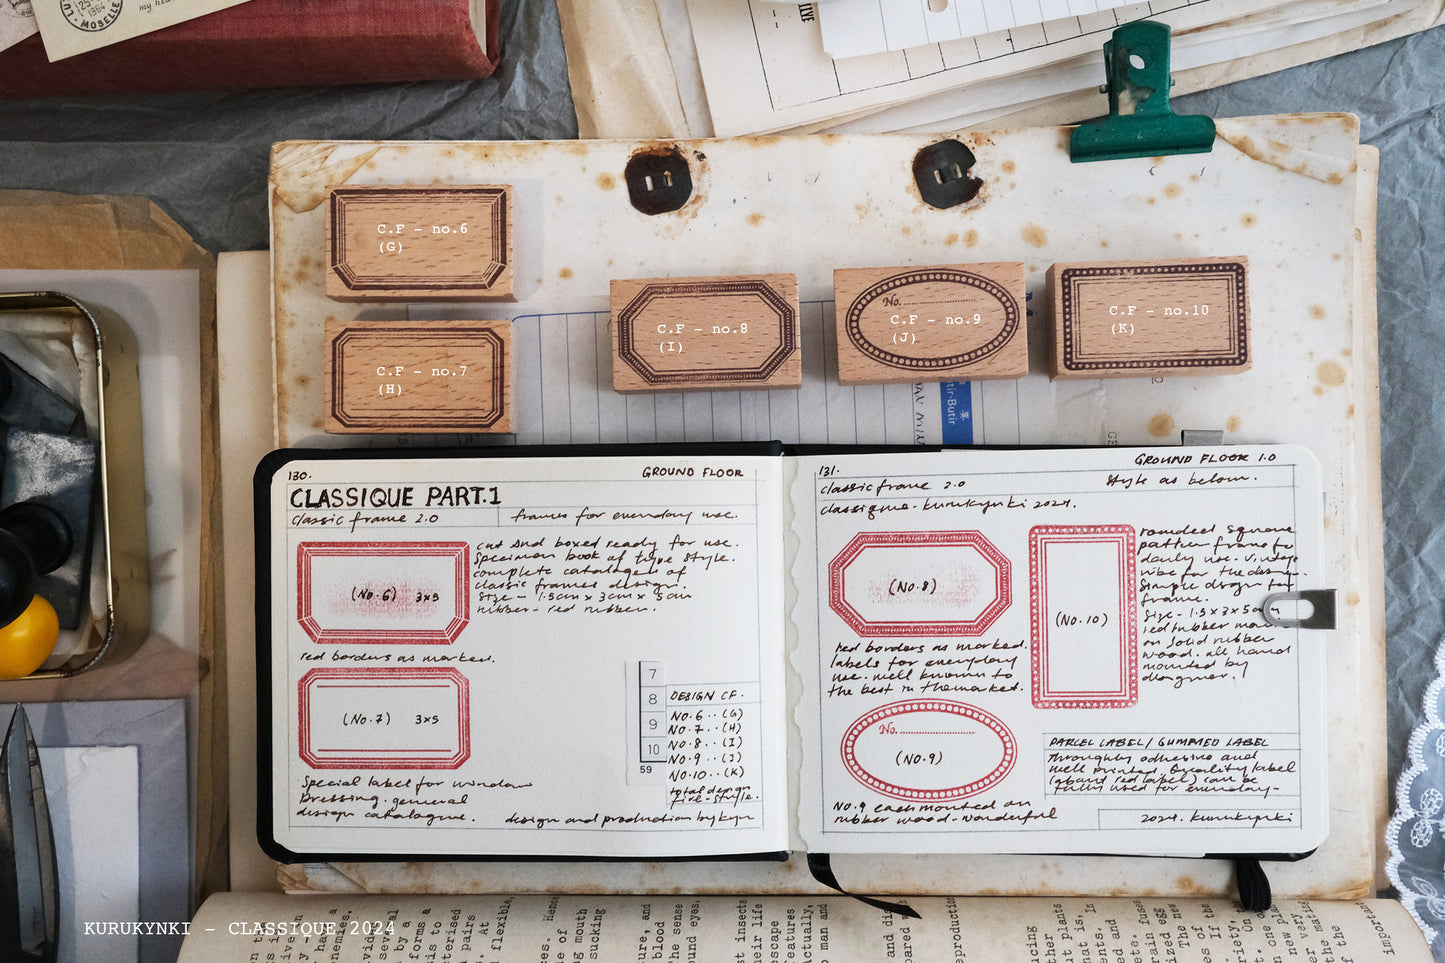 MOSELLE
1964
my hea
C.F - no.6
(G)
C.F - no.7
(H)
C.F - no.8
(I)
No.
C.F - no.9
(J)
C.F - no.10
(K)
tir-Butir
130.
GROUND FLOOR
CLASSIQUE PART.1
classic frame 2.0
frames for everyday use.
cut and boxed ready for use.
Specimen book of type style.
complete catalogue of
classic frames design.
size - 1.5cm x 3cm x 5cm
rubber - red rubber.
(No.6) 3x5
red borders as marked.
(No.7) 3x5
Special label for window
Dressing. general
design catalogue.
7
8
9
10
59
DESIGN CF.
NO.6 .. (G)
NO.7 .. (H)
NO.8 .. (I)
NO.9 .. (J)
NO.10 .. (K)
total design
five-style.
design and production by kyn
131.
GROUND FLOOR 1.0
classic frame 2.0
style as below.
classique - kurukynki 2024.
(No.8)
red borders as marked.
labels for everyday
use. well known to
the best in the market.
No.
(No.9)
NO.9 each mounted on
rubber wood - wonderful
(No.10)
rounded square
daily use. vintage
simple design for
frame.
size - 1.5x3x5cm
red rubber
on solid rubber
wood. all hand
mounted by
designer.
PARCEL LABEL / GUMMED LABEL
Throughly adhesive and
well printed. Quality label
(about red label) can be
fully used for everyday-
2024. kurukynki
KURUKYNKI - CLASSIQUE 2024